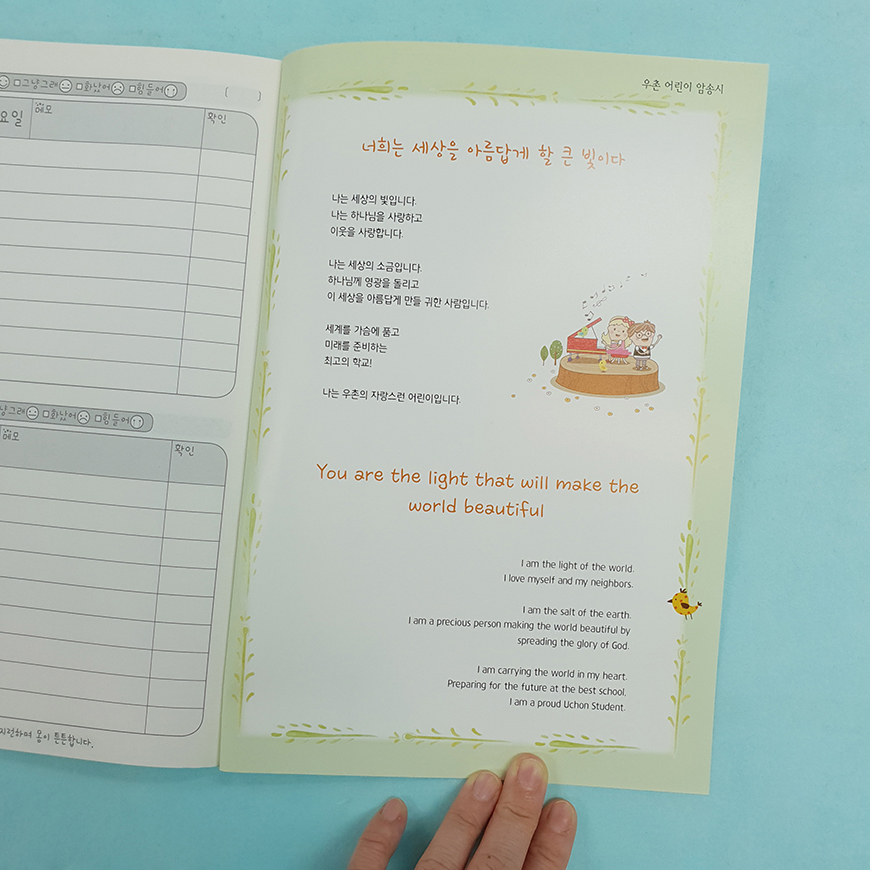 그냥그래 화났어 힘들어
요일 메모 확인
그냥그래 화났어 힘들어
메모 확인
몸이 튼튼합니다.
우촌 어린이 암송시
너희는 세상을 아름답게 할 큰 빛이다
나는 세상의 빛입니다.
나는 하나님을 사랑하고
이웃을 사랑합니다.
나는 세상의 소금입니다.
하나님께 영광을 돌리고
이 세상을 아름답게 만들 귀한 사람입니다.
세계를 가슴에 품고
미래를 준비하는
최고의 학교!
나는 우촌의 자랑스런 어린이입니다.
You are the light that will make the
world beautiful
I am the light of the world.
I love myself and my neighbors.
I am the salt of the earth.
I am a precious person making the world beautiful by
spreading the glory of God.
I am carrying the world in my heart.
Preparing for the future at the best school,
I am a proud Uchon Student.